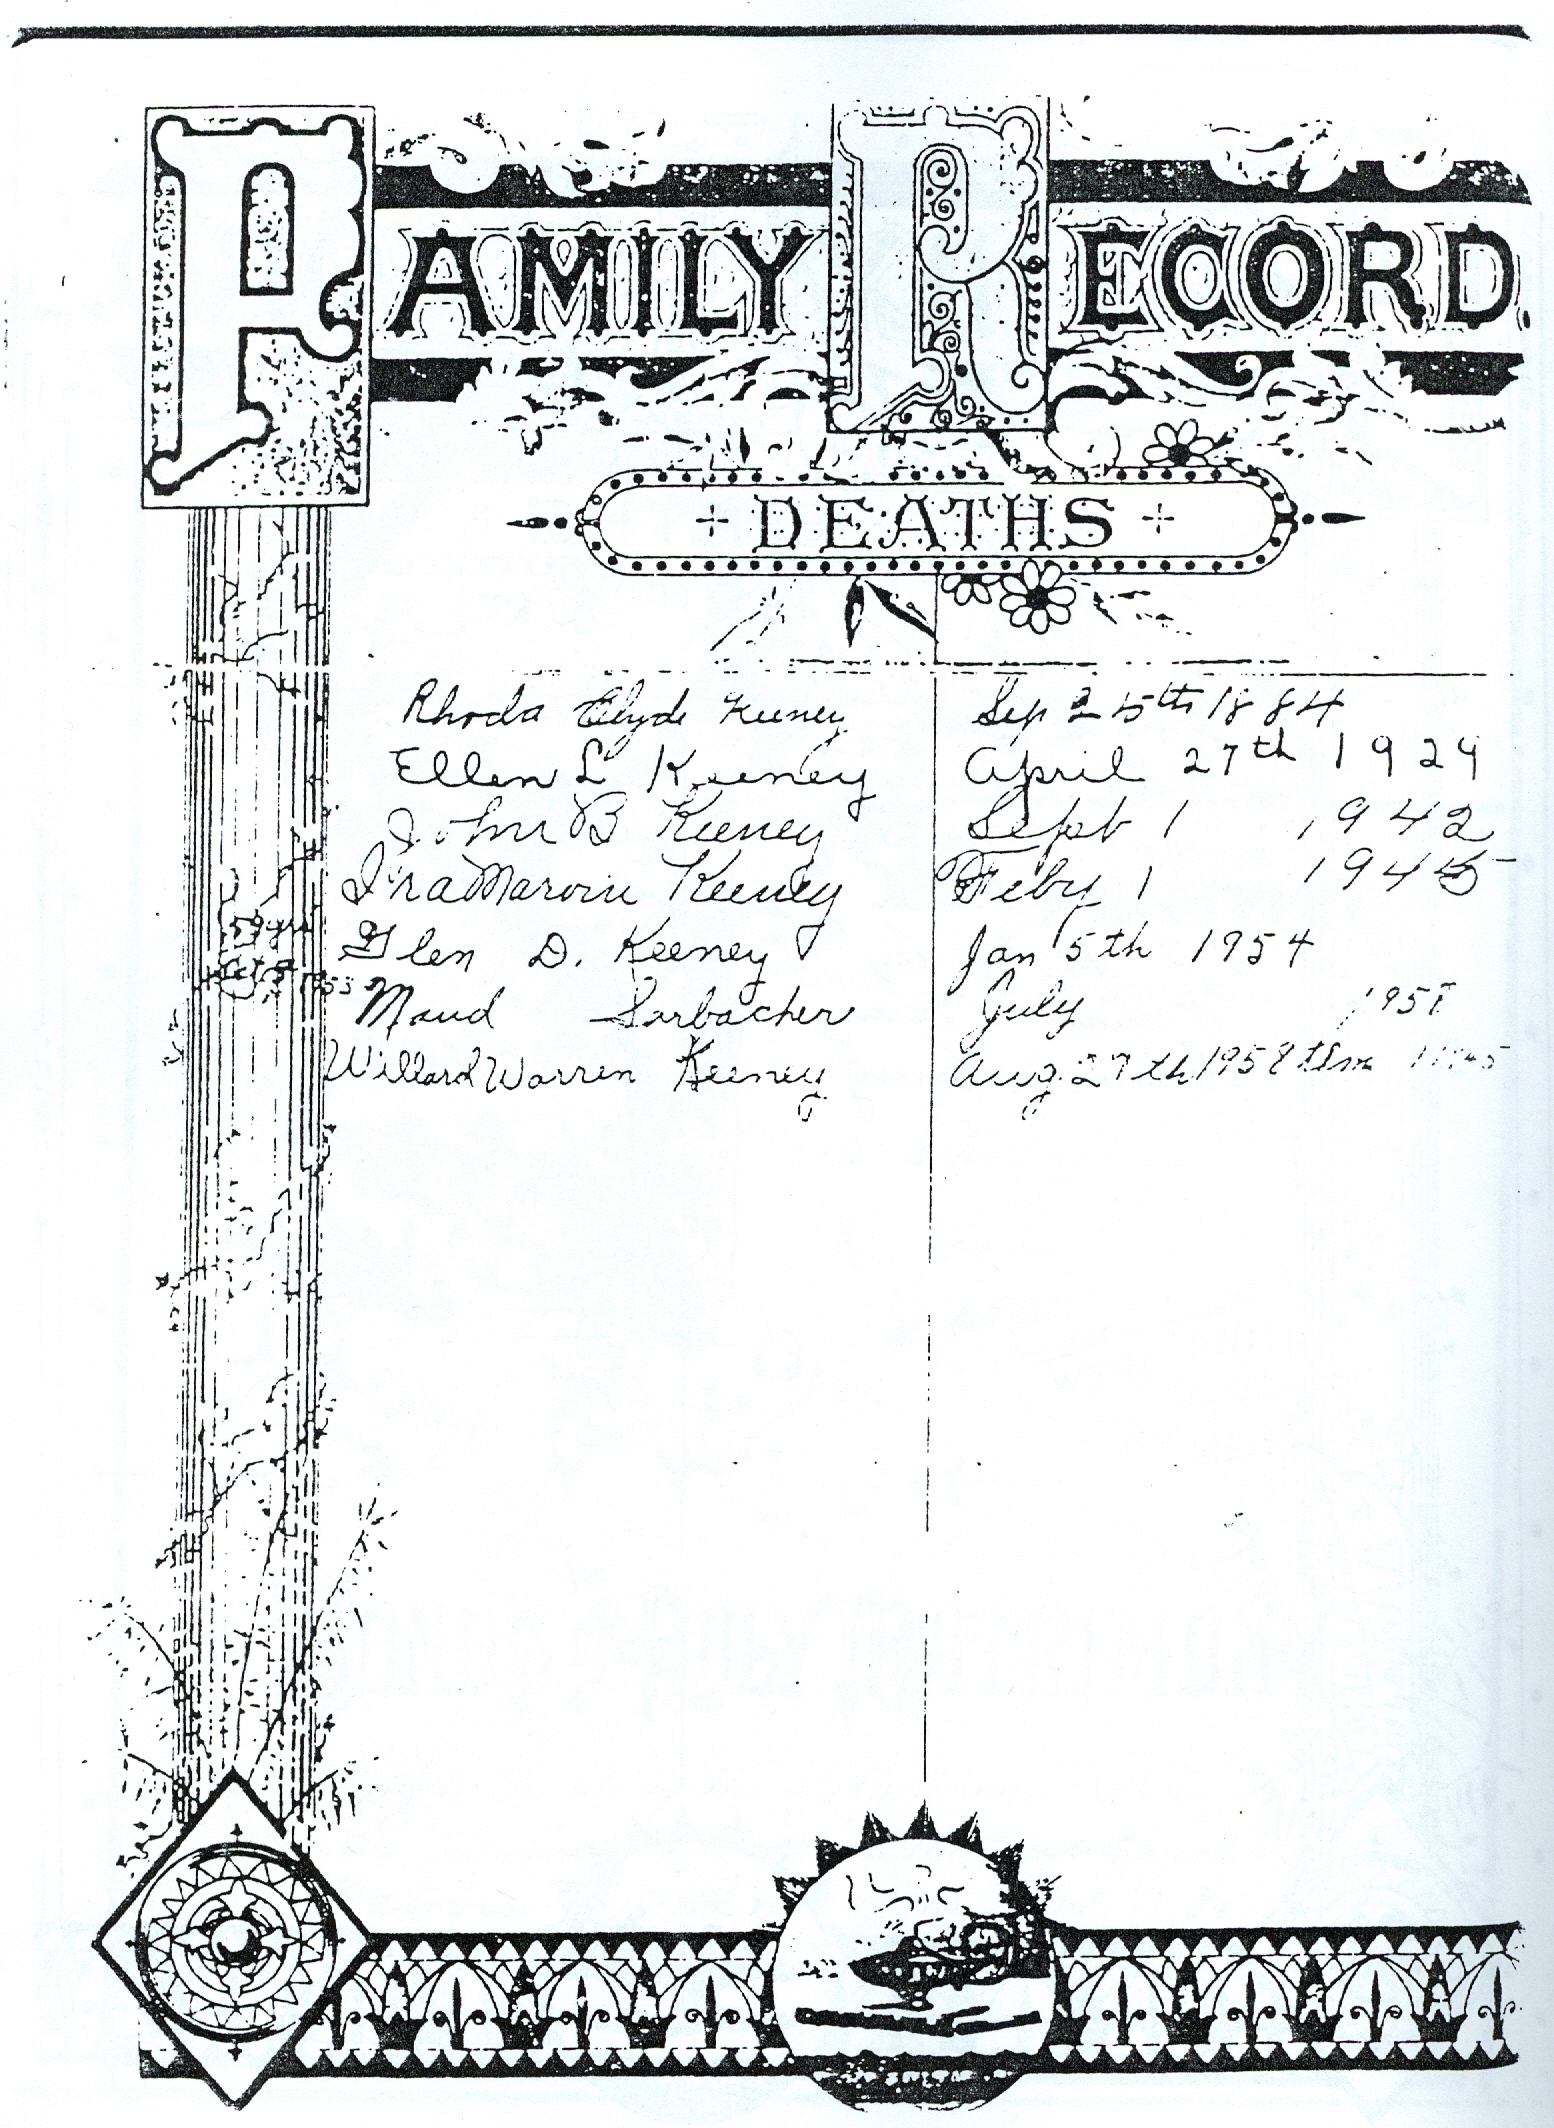 FAMILY RECORD.
DEATHS
Rhoda Clyde Keeney Sep 25th 1884
Ellen L Keeney April 27th 1929
John B Keeney Sept 1 1942
Ira Marvin Keeney Feby 1 1945
59 yrs Glen D. Keeney Jan 5th 1954
Oct 1953 Maud Sorbacher July 1951
Willard Warren Keeney Aug. 27th 1958